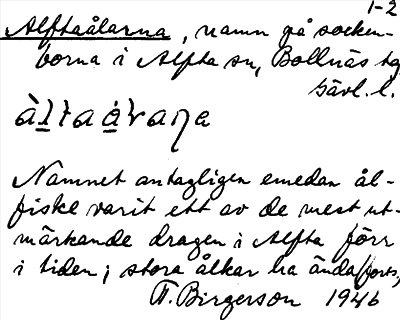 1-2
Alftaålarna, namn på socken-
borna i Alfta sn, Bollnäs tg
Gävl. l.
Namnet antagligen emedan ål-
fiske varit ett av de mest ut-
märkande dragen i Alfta förr
i tiden; stora ålkar ha ända(forts,
F. Birgerson 1946